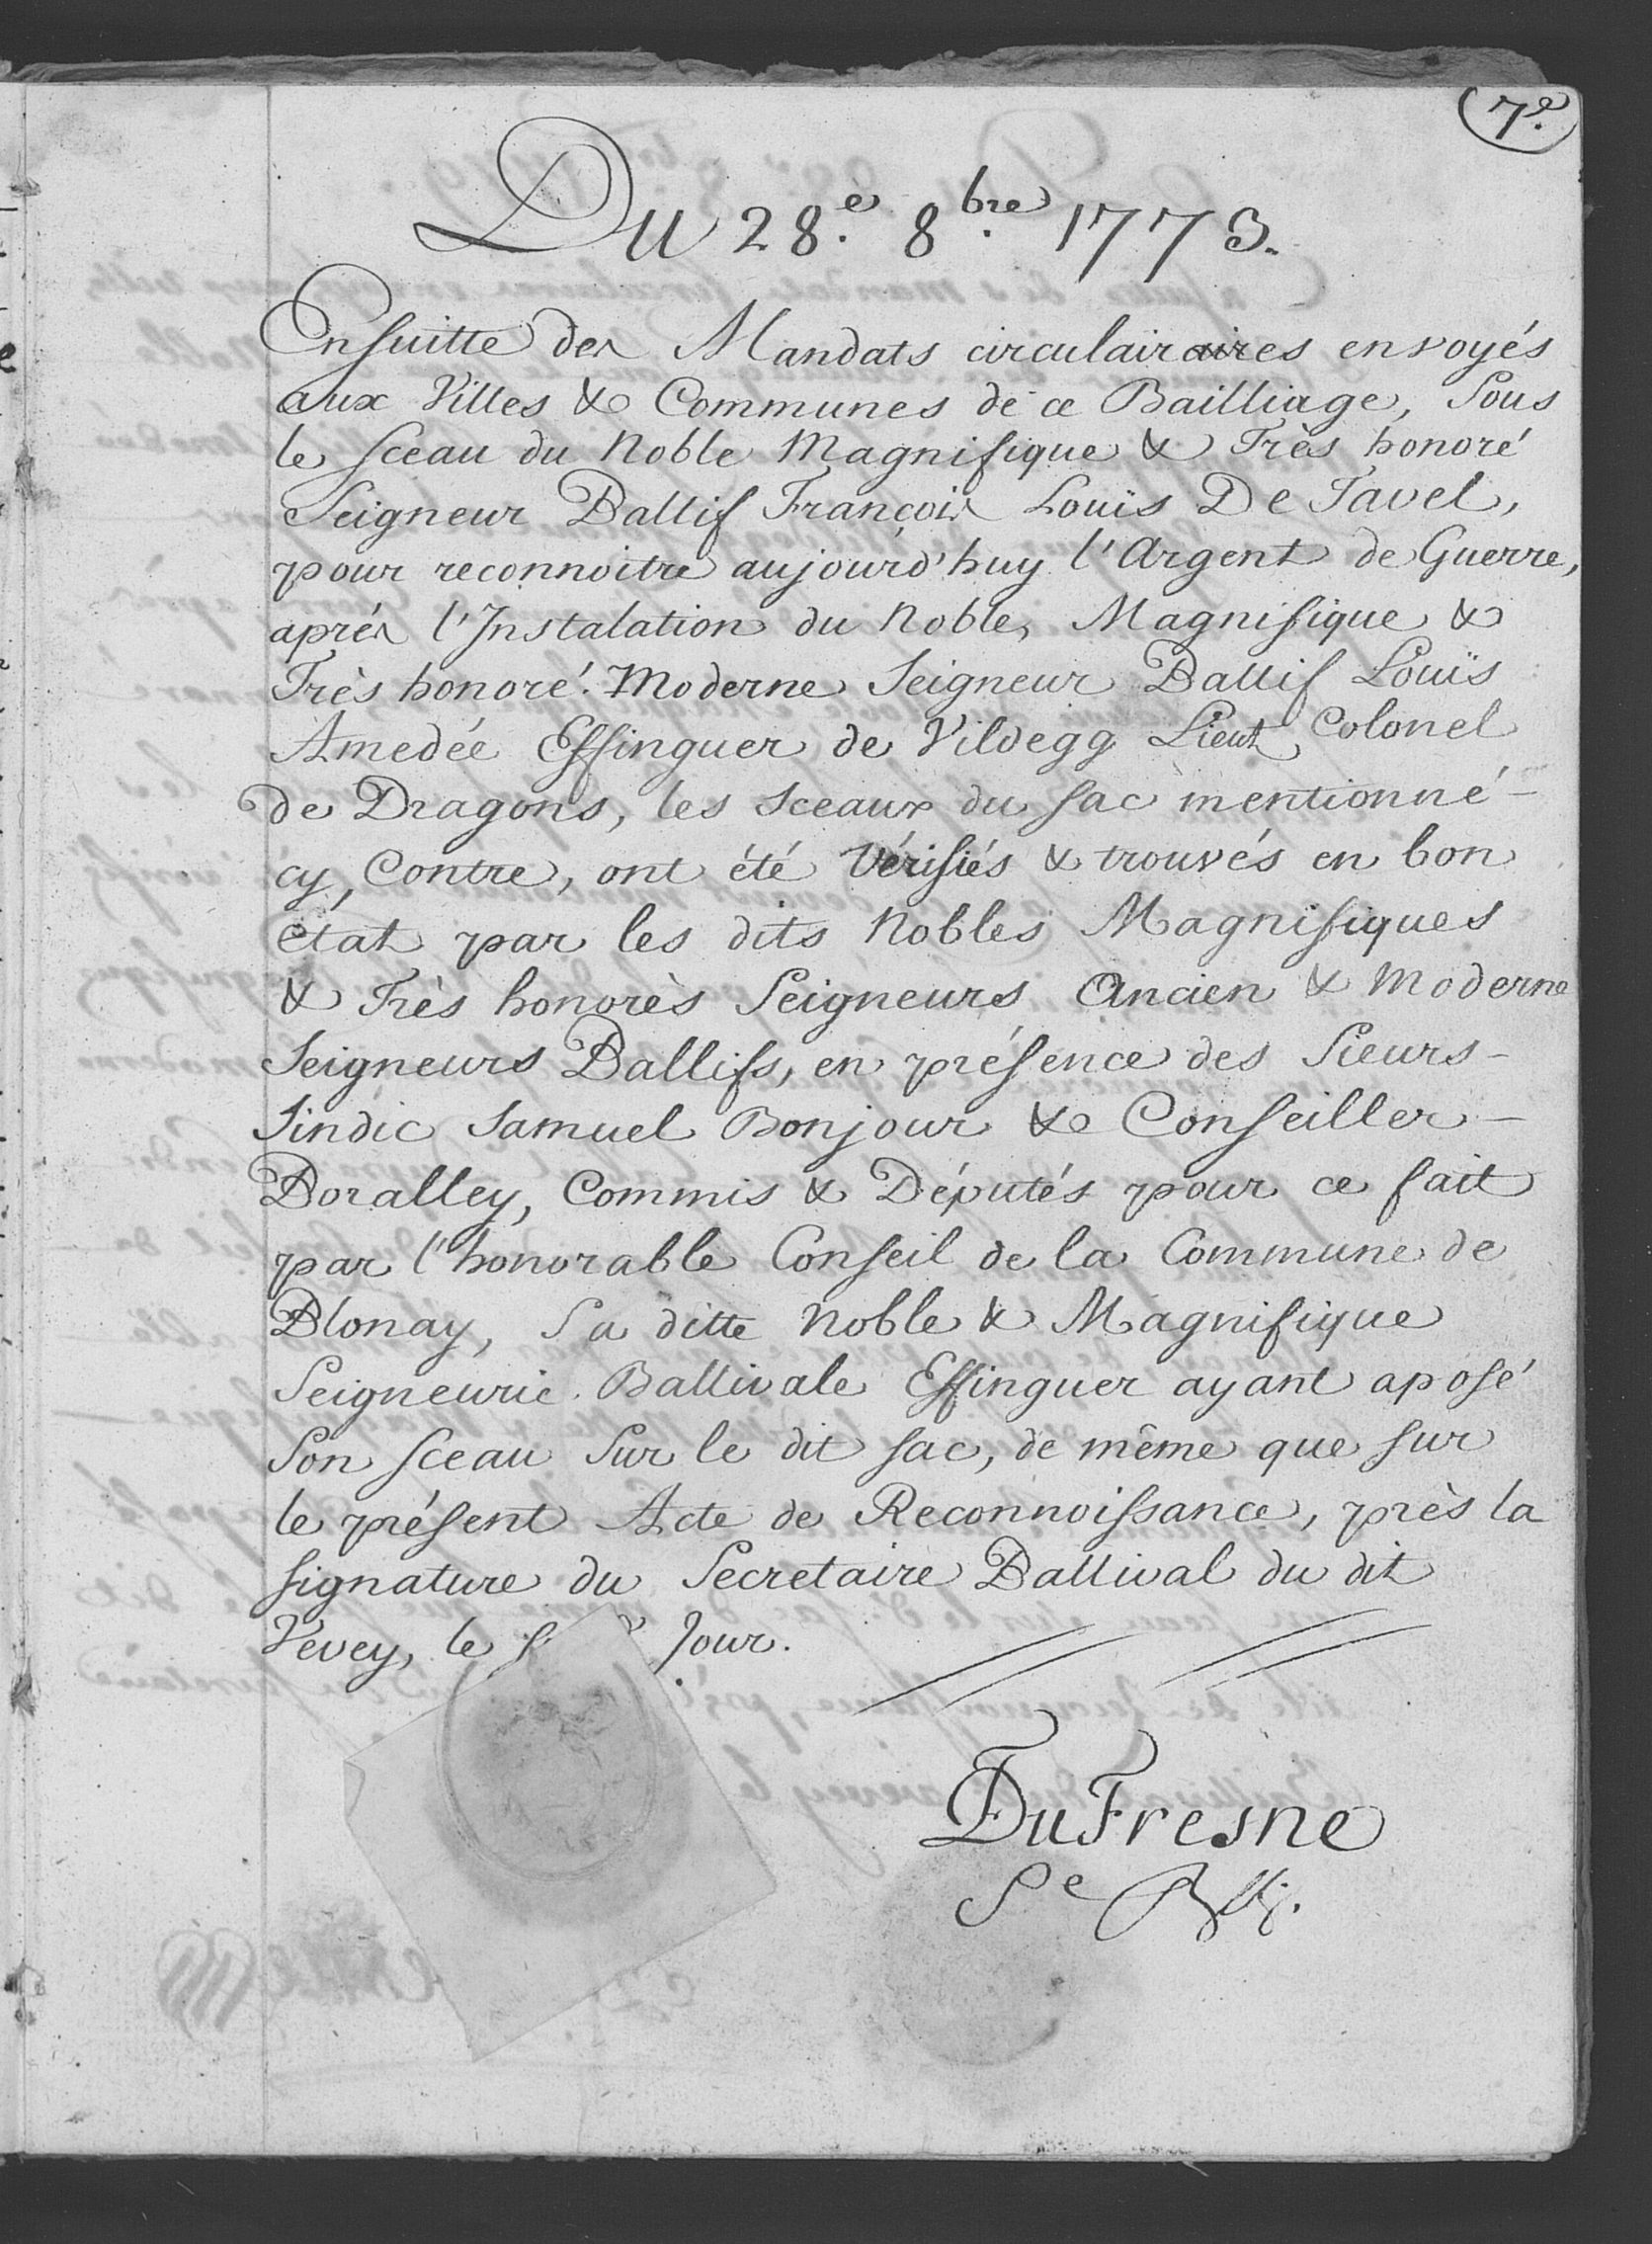 7e.
Du 28.e 8.bre 1773.
Ensuitte des Mandats circulairaires envoyés
aux Villes & Communes de ce Bailliage, Sous
le Sceau du Noble Magnifique & Très honoré
Seigneur Ballif François Louïs De Tavel,
pour reconnoitre aujourd'huy l'Argent de Guerre,
aprés l'Instalation du Noble, Magnifique &
Très honoré. Moderne Seigneur Ballif Louïs
Amedée Effinguer de Vildegg Lieut Colonel
de Dragons, les Sceaux du sac mentionné -
cy, Contre, ont été Vérifiés & trouvés en bon
état par les dits Nobles Magnifiques
& Très honorès Seigneurs Ancien & Moderne
Seigneurs Ballifs, en présence des Sieurs -
Sindic Samuel Bonjour & Conseiller -
Boralley, Commis & Députés pour ce fait
par l'honorable Conseil de la Commune de
Blonay, Sa ditte Noble & Magnifique
Seigneurie Ballivale Effinguer ayant aposé
Son Sceau Sur le dit sac, de même que sur
le présent Acte de Reconnoissance, près la
signature du Secretaire Ballival du dit
Vevey, le Jour.
DuFresne
Se Balli.